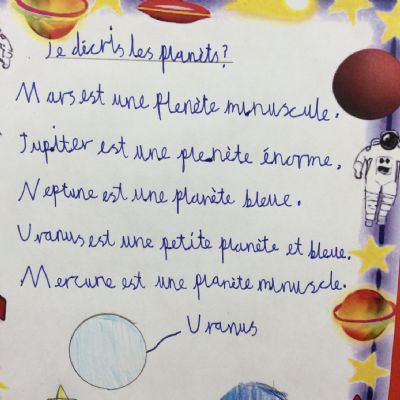 Je décris les planèts?
Mars est une plenète minuscule.
Jupiter est une plenète énorme.
Neptune est une planète bleue.
Uranus est une petite planète et bleue.
Mercure est une planète minuscle.
Uranus